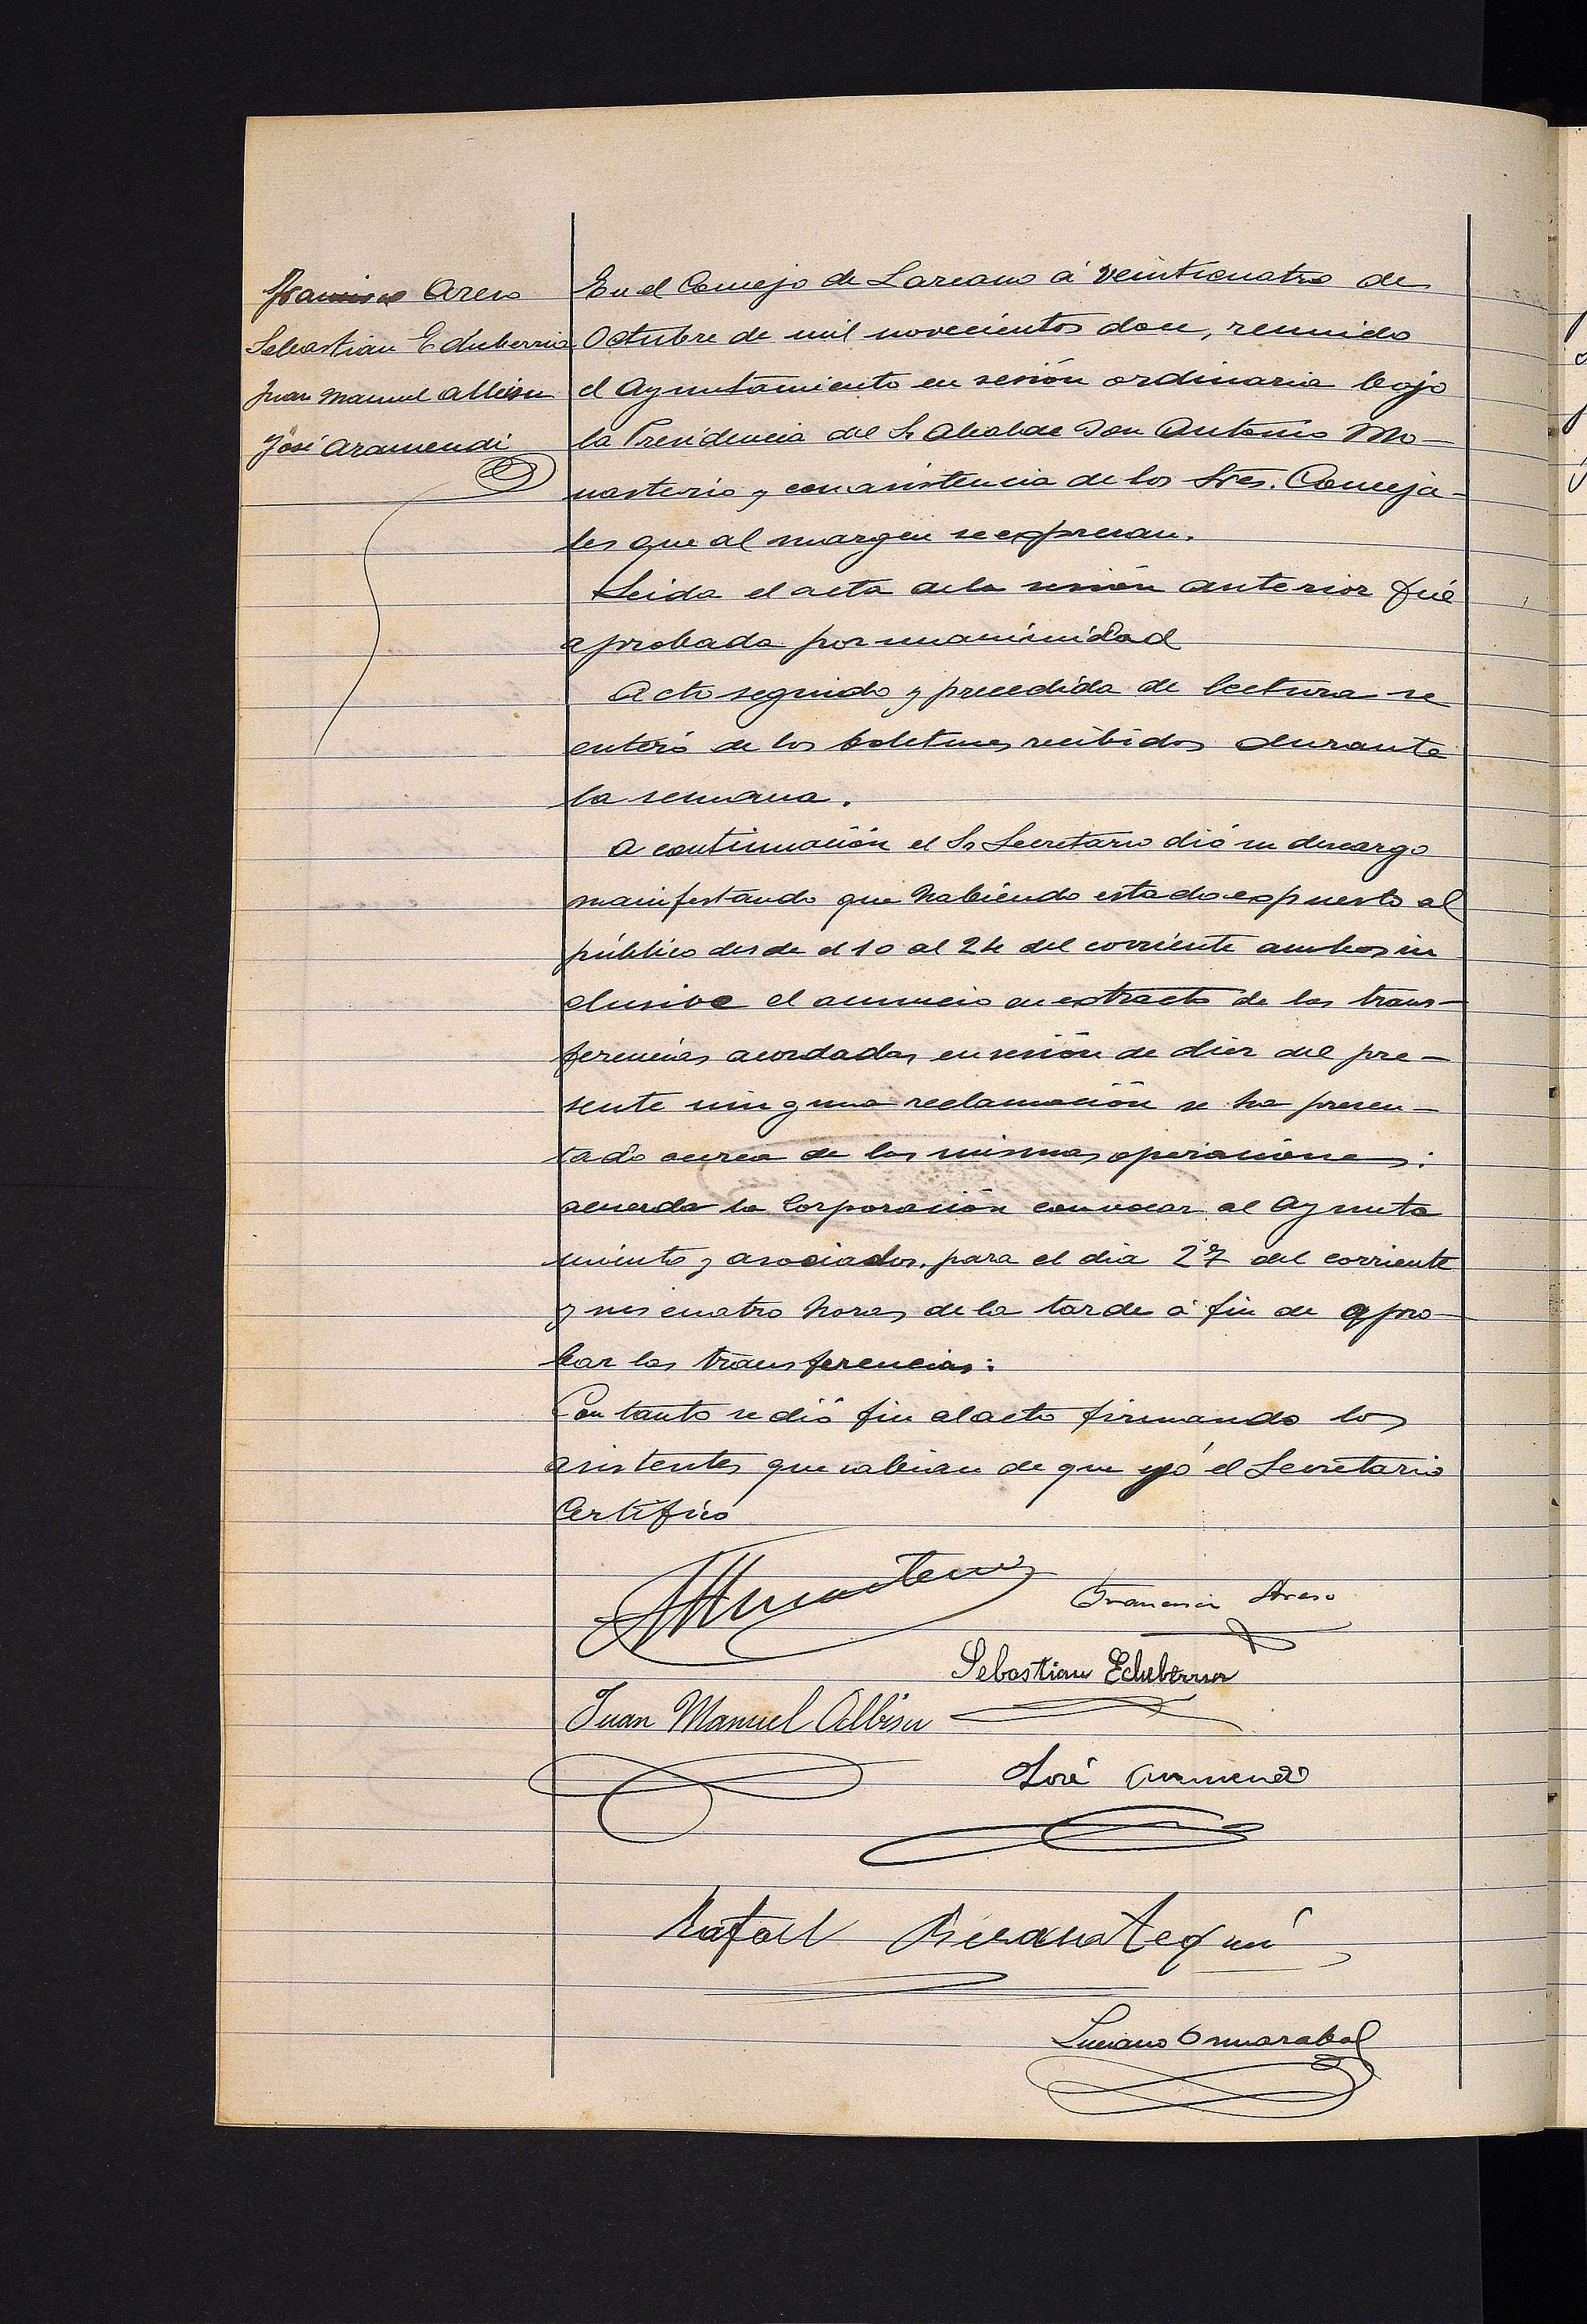 Francisco Areso
Sebastian Echeberria
Juan Manuel Albisu
José Aramendi
En el Concejo de Lazcano á veinticuatro de
Octubre de mil novecientos doce, reunido
el Ayuntamiento en sesión ordinaria bajo
la Presidencia del Sr Alcalde Don Antonio Mo-
nasterio y con asistencia de los Sres. Conceja-
les que al margen se expresan.
Leida el acta de la sesión anterior fué
aprobada por unanimidad
Acto seguido y precedida de lectura se
enteró de los boletines recibidos durante
la semana.
A continuación el Sr Secretario dió su descargo
manifestando que habiendo estado expuesto al
público desde el 10 al 24 del corriente ambos in
clusive el anuncio en extracto de las trans-
ferencias acordadas en sesión de diez del pre-
sente ninguna reclamación se ha presen-
tado acerca de las mismas operaciones:
acuerda la Corporación convocar al Ayunta
miento y asociados, para el dia 27 del corriente
y sus cuatro horas de la tarde á fin de apro
bar las transferencias:
Con tanto se dió fin al acto firmando los
asistentes que sabian de que yó el Secretario
Certifico
AMonasterio
Francisco Areso
Sebastian Echeberria
Juan Manuel Albisu
José Aramendi
Rafael
Luciano